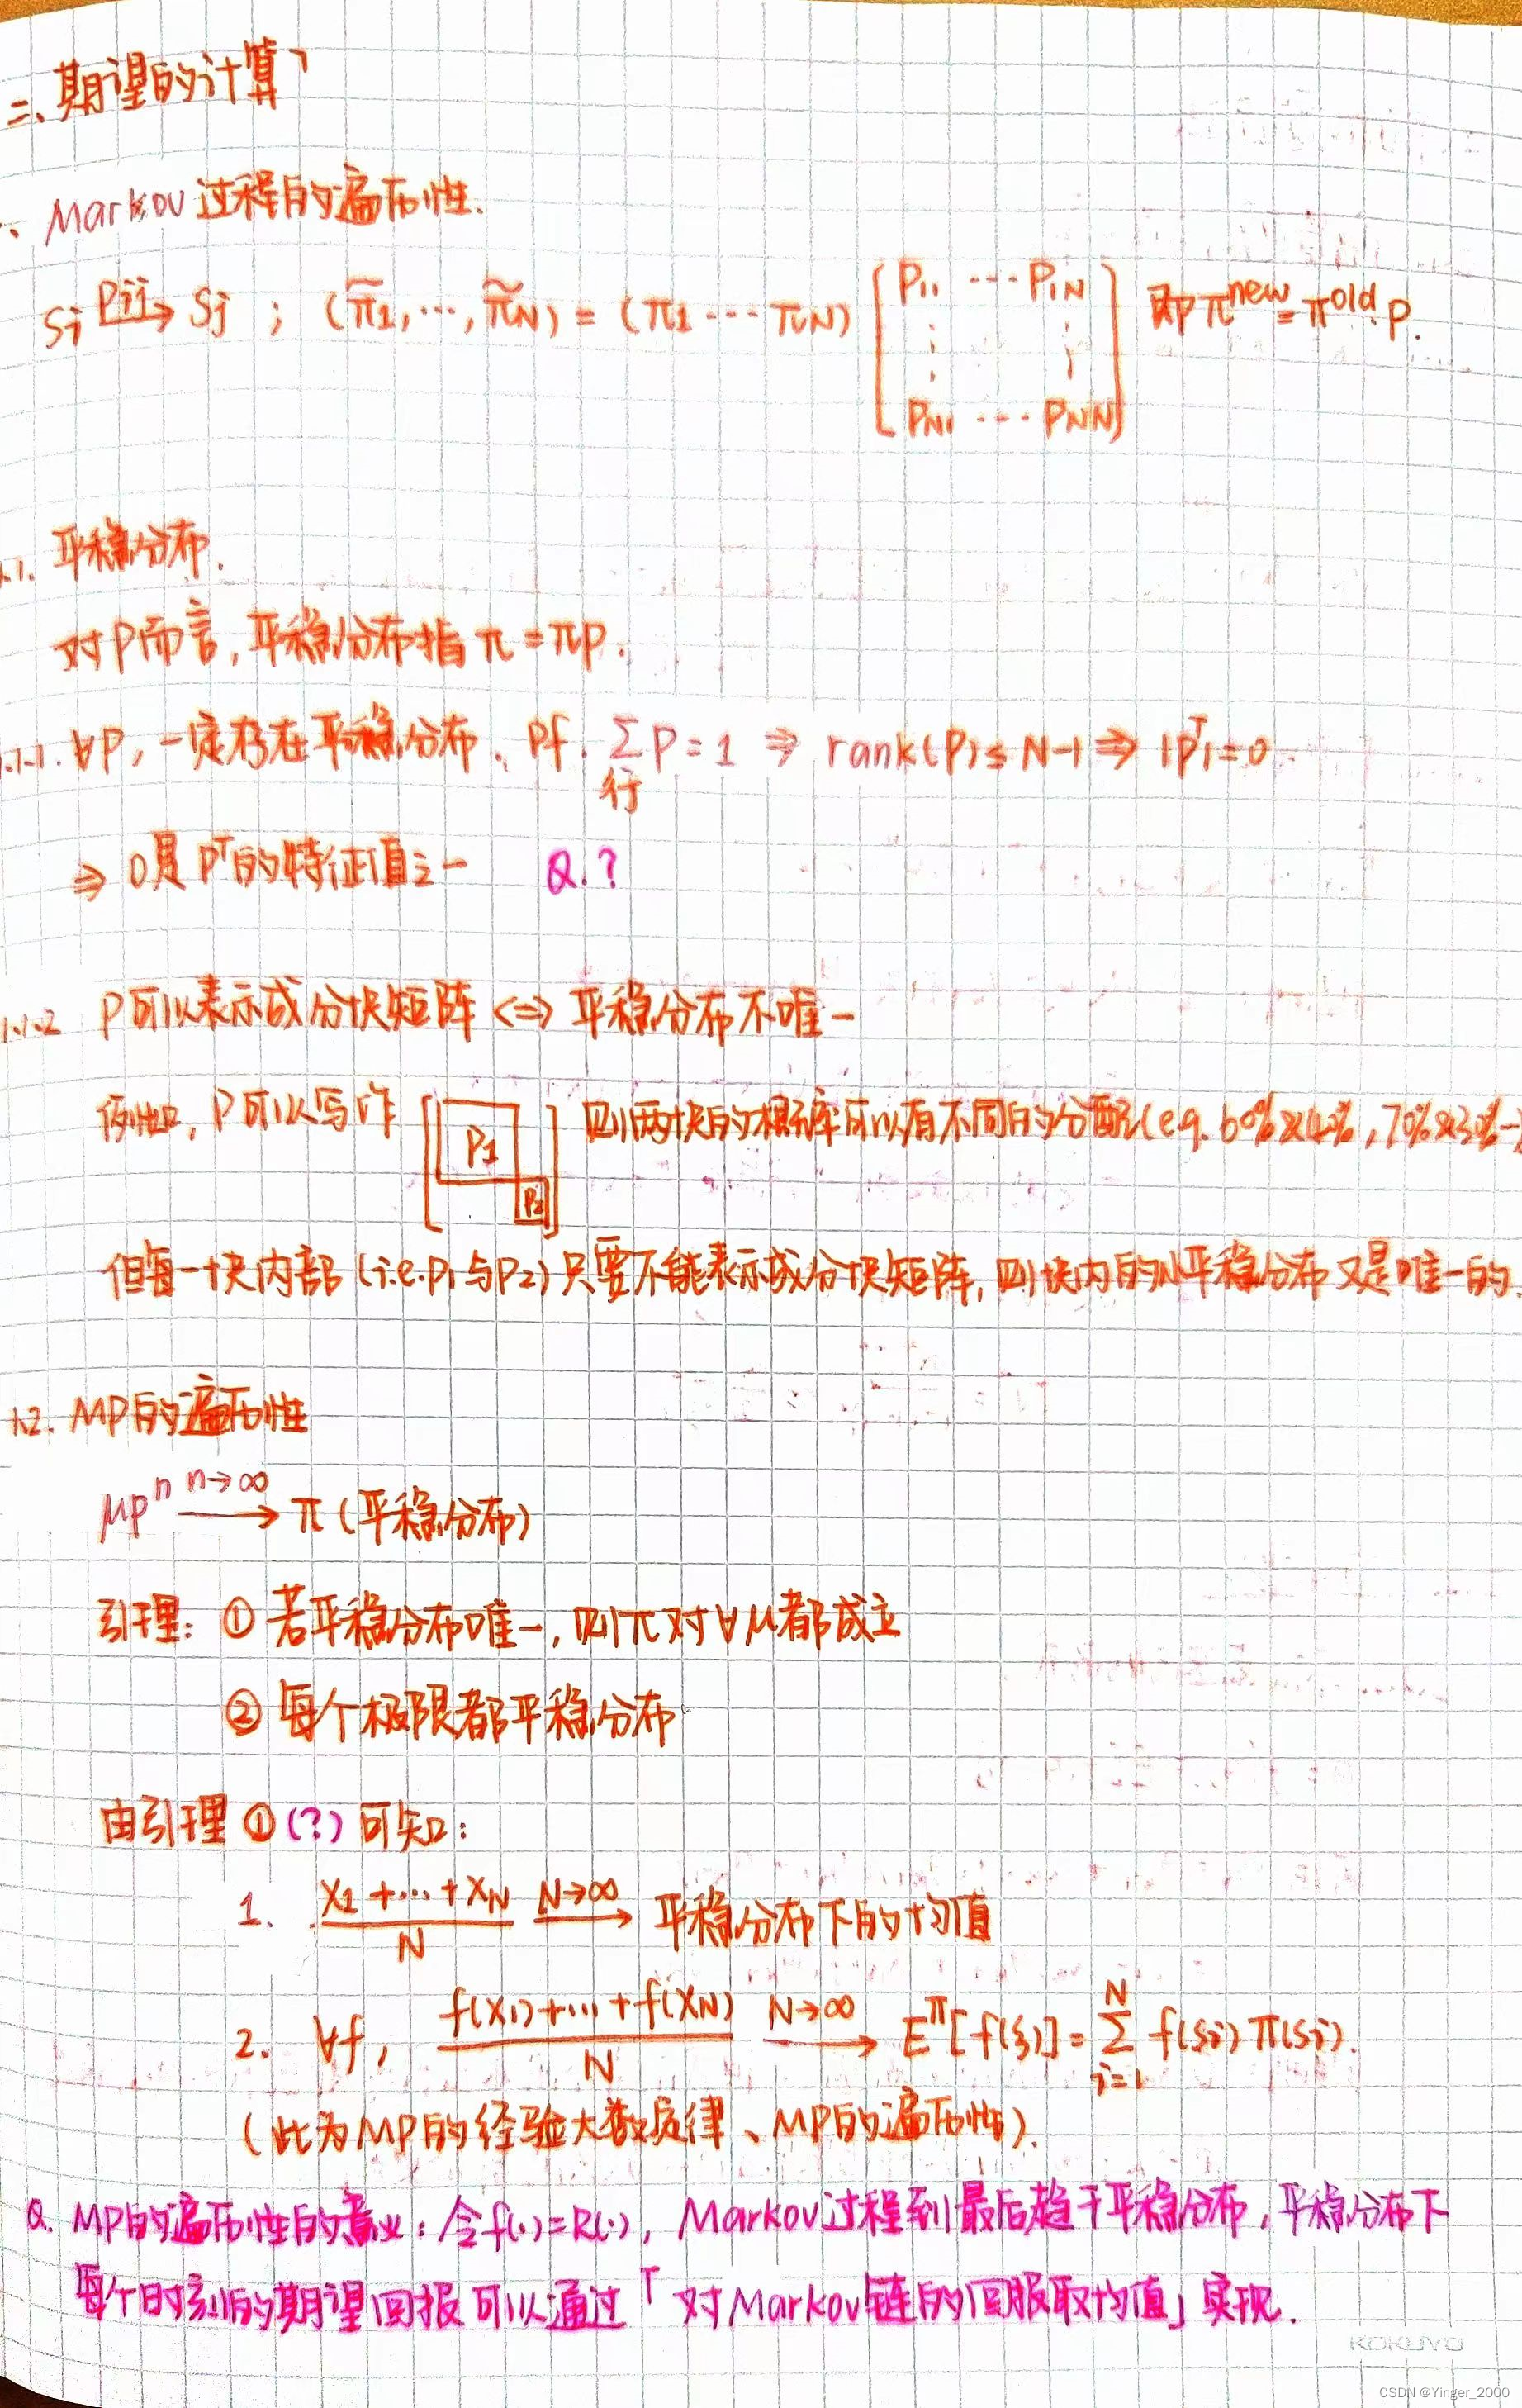 二、期望的计算
、Markov过程的遍历性.
Si Pij→ Sj ; (π̃1,…,π̃N) = (π1 --- πN) [P11 --- P1N ⋮ ⋮ PN1 --- PNN] 即π^new = π^old · P.
1.1. 平稳分布.
对P而言,平稳分布指 π = πP.
1.1.1. ∀P, 一定存在平稳分布. Pf. ∑行 P = 1 ⇒ rank(P) ≤ N-1 ⇒ |P^T| = 0.
⇒ 0是P^T的特征值之一 Q.?
1.1.2 P可以表示成分块矩阵 <=> 平稳分布不唯一
例如, P可以写作 [P1 P2] 则两块的概率可以有不同的分配(e.g. 60%&40%, 70%&30%…)
但每一块内部 (i.e. P1与P2) 只要不能表示成分块矩阵, 则块内的小平稳分布又是唯一的.
1.2. MP的遍历性
μP^n n→∞ → π (平稳分布)
引理: ① 若平稳分布唯一, 则π对∀μ都成立
② 每个极限都平稳分布
由引理 ① (?) 可知:
1. (X1+…+XN)/N N→∞ → 平稳分布下的均值
2. ∀f, (f(X1)+…+f(XN))/N N→∞ → E^π[f(ξ)] = ∑_{i=1}^{N} f(Si) π(Si).
(此为MP的经验大数定律、MP的遍历性).
Q. MP的遍历性的意义: 令f(·)=R(·), Markov过程到最后趋于平稳分布, 平稳分布下
每个时刻的期望回报可以通过「对Markov链的回报取均值」实现.
KOKUYO
CSDN @Yinger_2000